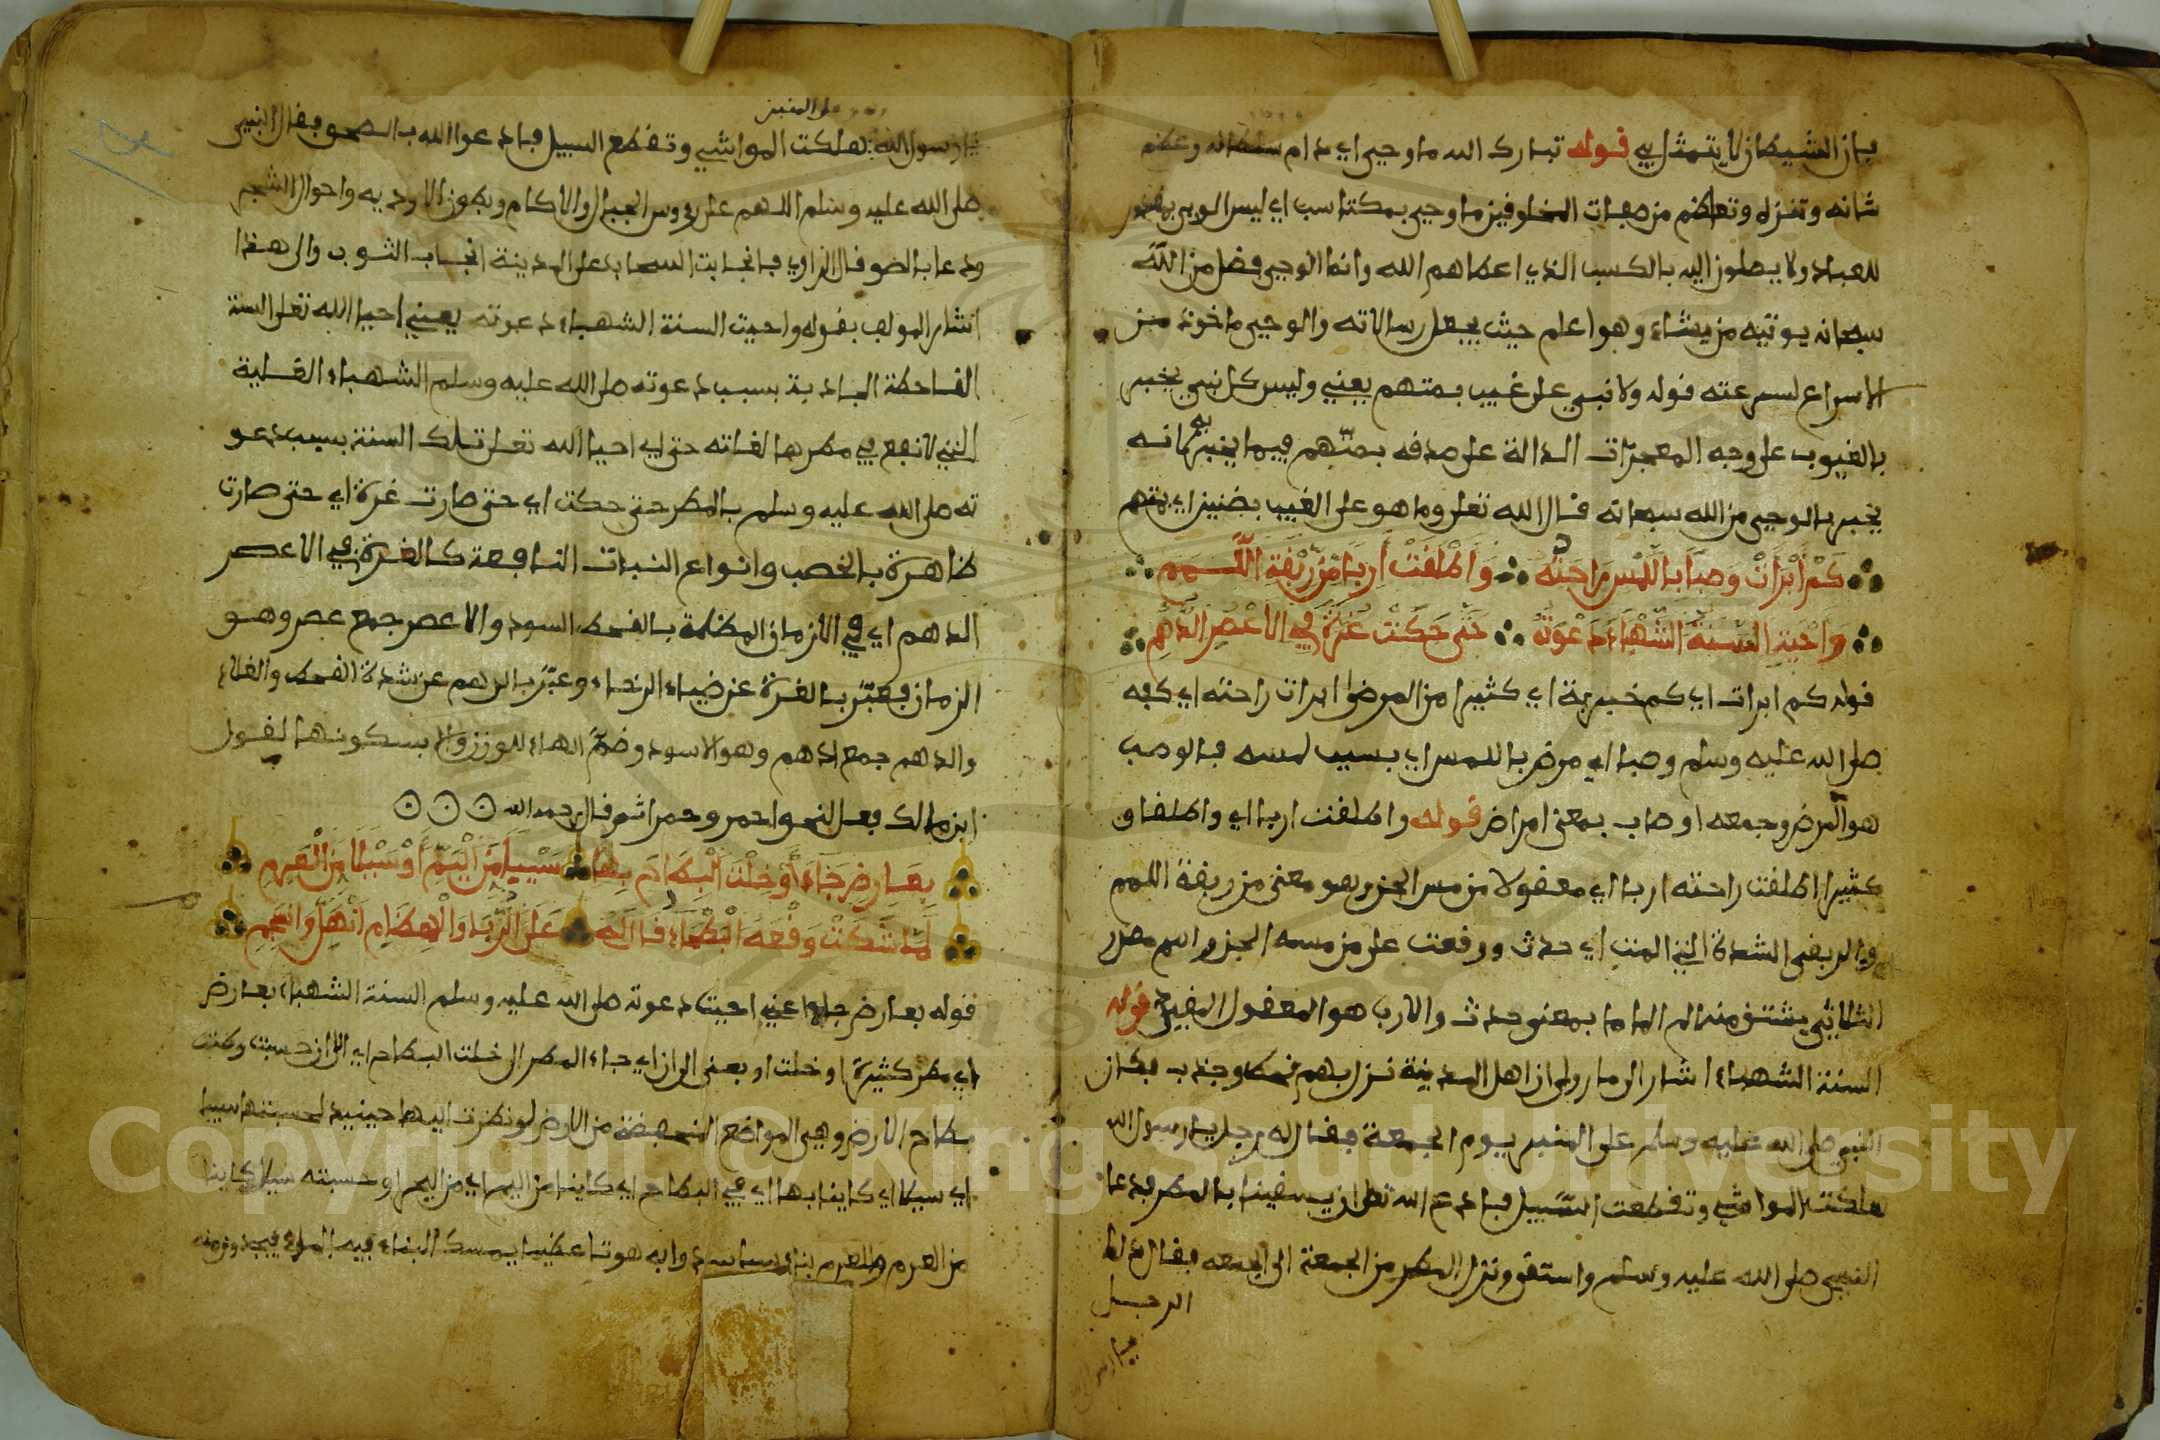 فإن الشيطان لا يتمثل بي قوله تبارك الله ما وحي اي دام سلطانه وعظم
شانه وتنزه وتعاظم من صفات المخلوقين ما وحي بمكتسب اي ليس الوحي
للعباد ولا يصلون اليه بالكسب الذي اعطاهم الله وانما الوحي فضل من الله
سبحانه يوتيه من يشاء وهو اعلم حيث يجعل رسالاته والوحي ماخوذ من
الاسراع لسرعته قوله ولا نبي على غيب بمتهم يعني وليس كل نبي يخبر
بالغيوب على وجه المعجزات الدالة على صدقه بمتهم فيما يخبر به لانه
يخبر بالوحي من الله سبحانه قال الله تعلى وما هو على الغيب بضنين اي بمتهم
كم أبرأت وصبا باللمس راحته وأطلقت أربا من ربقة اللمم
وأحيت السنة الشهباء دعوته حتى حكت غرة في الأعصر الدهم
قوله كم ابرات اي كم خبرية اي كثيرا من المرضى ابرات راحته اي كفه
صلى الله عليه وسلم وصبا اي مرض باللمس اي بسبب لمسه فالوصب
هو المرض وجمعه اوصاب بمعنى امراض قوله واطلقت اربا اي واطلقا و
كثيرا اطلقت راحته اربا اي معقولا من مس الجن وهو معنى من ربقة اللمم
والربقى الشدة التي المت اي حدث ووقعت على من مسه الجن واسم مصدر
الثلاثي يشتق منه الم الماما بمعنى حدث والارب هو المعقول المقيد قوله
السنة الشهباء اشار الى ما روي ان اهل المدينة نزل بهم قحط وجذب فكان
النبي صلى الله عليه وسلم على المنبر يوم الجمعة فقال له رجل يا رسول الله
هلكت المواشي وتقطعت السبيل فادع الله تعلى ان يسقينا بالمطر فدعا
النبي صلى الله عليه وسلم واستقى ونزل المطر من الجمعة الى الجمعه فقال له ذلك
الرجل
يا رسول
على المنبر
يا رسول الله هلكت المواشي وتقطع السبيل فادعوا الله بالصحو فقال النبي
صلى الله عليه وسلم اللهم على رءوس الجبال والاكام وبطون الاودية واحوال الشجر
ودعا بالصحو قال الراوي فانجابت السحاب على المدينة انجياب الثوب والى هذا
اشار المولف بقوله واحيت السنة الشهباء دعوته يعني احيا الله تعلى السنة
القاحطة الجادبة بسبب دعوته صلى الله عليه وسلم الشهباء القلية
التي لا نفع في مطرها لقلته حتى اي احيا الله تعلى تلك السنة بسبب دعو
ته صلى الله عليه وسلم بالمطر حتى حكت اي حتى صارت غرة اي حتى صارت
ظاهرة بالخصب وانواع النبات النافعة كالغرة في الاعصر
الدهم اي في الازمان المظلمة بالقحط السود والاعصر جمع عصر وهو
الزمان فعبر بالغرة عن ضياء الرخاء وعبر بالدهم عن شدة القحط والغلاء
والدهم جمع ادهم وهو الاسود وضم الهاء للوزن والا بسكونها لقول
ابن مالك فعل لنحو احمر وحمرا ثم قال رحمه الله
بعارض جاد أو خلت البطاح بها سيبا من اليم أو سيلا من العرم
لما شكت وقعه البطحاء قال له على الربا والهضاب انهل وانسجم
قوله بعارض جاد اعني احيت دعوته صلى الله عليه وسلم السنة الشهباء بعارض
اي مطر كثيرة او خلت او بمعنى الى ان اي جاء المطر الى خلت البطاح اي الى ان حسبت وظننت
بطاح الارض وهي المواضع المنخفضة من الارض لو نظرت اليها حينيذ لحسبتها سيبا
اي سيبا اي كاينا بها اي في البطاح اي كاينا من اليم اي من البحر او حسبته سيلا كاينا
من العرم والعرم بناء